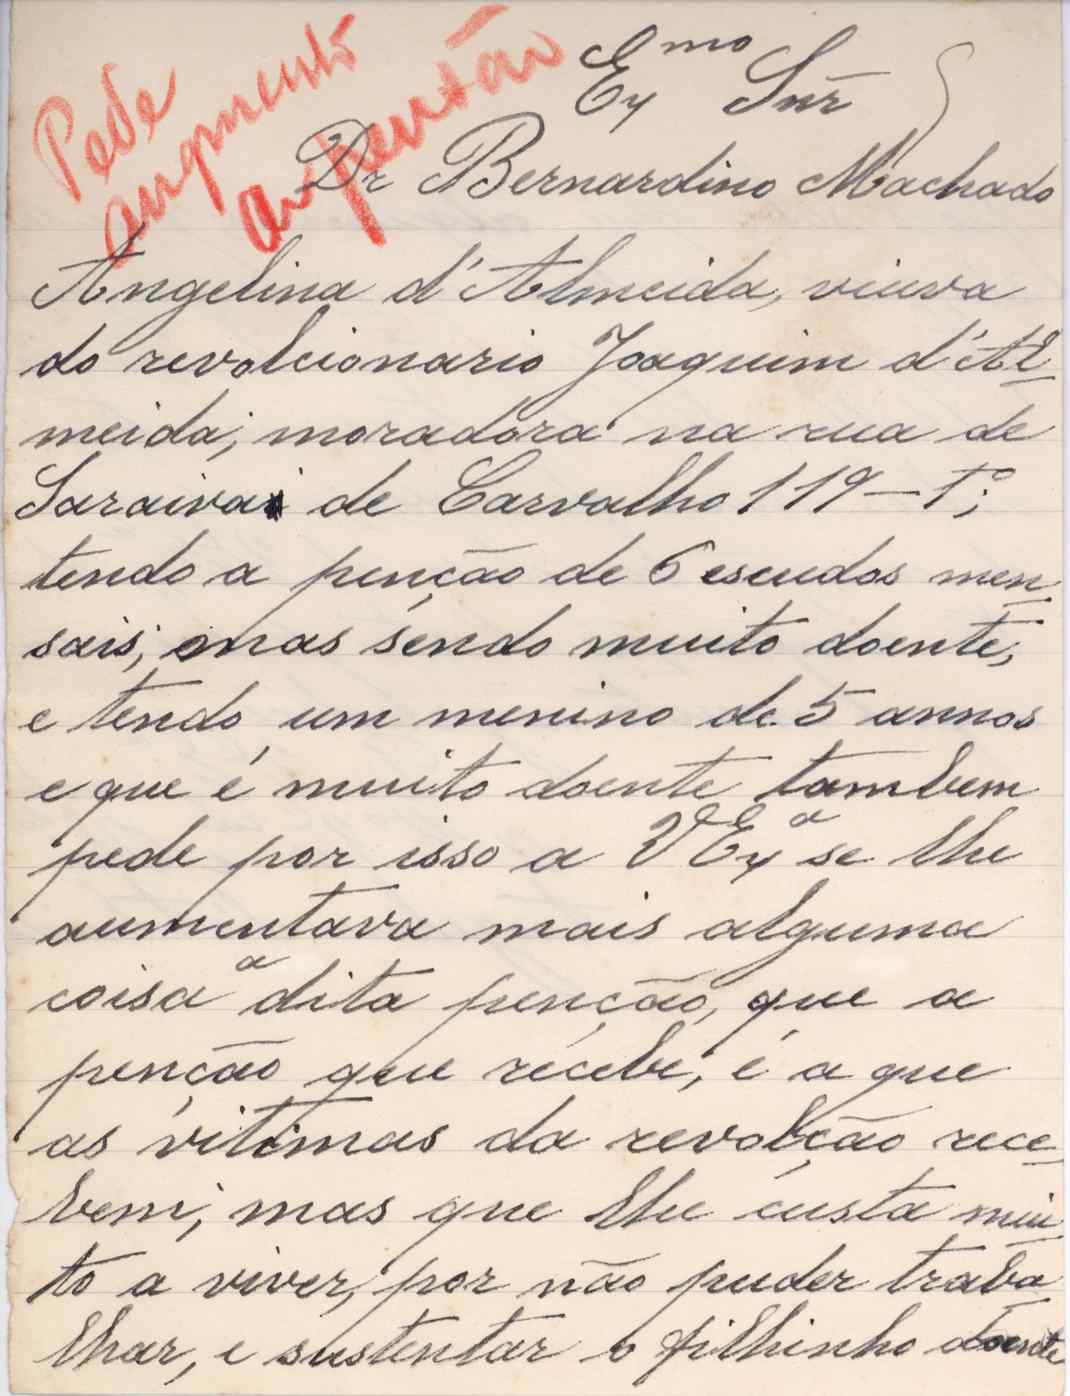 Pede
augmento
da pensão
Exmo Snr
Dr Bernardino Machado
Angelina d'Almeida, viuva
do revolcionario Joaquim d'Al
meida; moradora na rua de
Saraiva de Carvalho 119-1º;
tendo a penção de 6 escudos men
sais; mas sendo muito doente,
e tendo um menino de 5 annos
e que é muito doente tambem
pede por isso a VExª se lhe
aumentava mais alguma
coisa a dita penção, que a
penção que recebe; é a que
as vitimas da revolção rece
bem; mas que lhe custa mui
to a viver, por não puder traba
lhar, e sustentar o filhinho doente